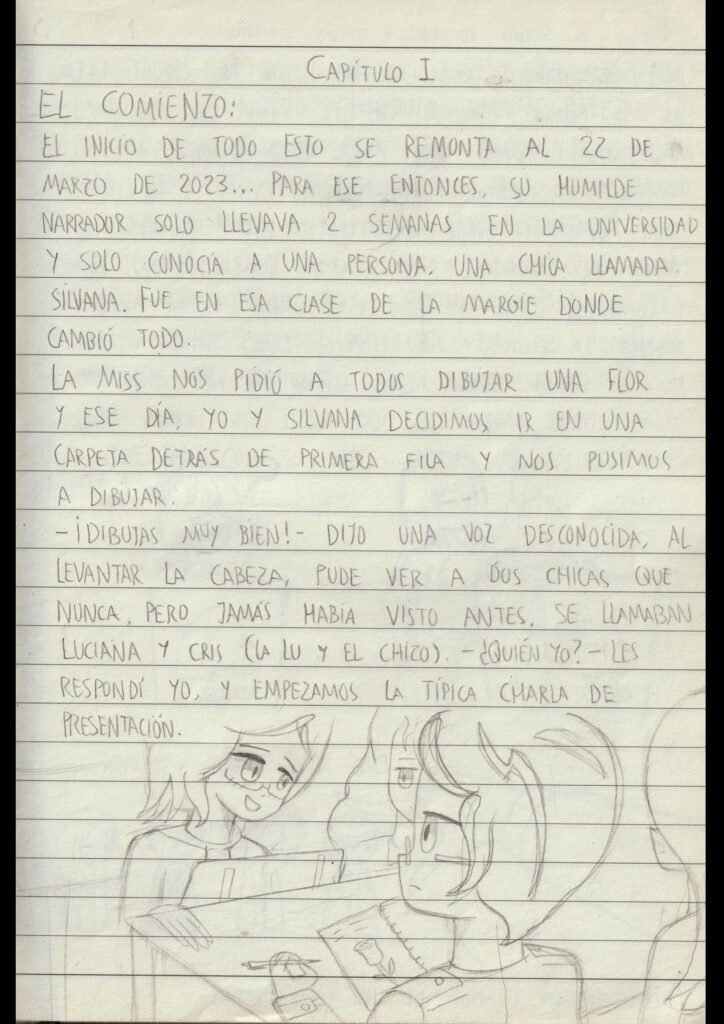 CAPÍTULO I
EL COMIENZO:
EL INICIO DE TODO ESTO SE REMONTA AL 22 DE
MARZO DE 2023... PARA ESE ENTONCES, SU HUMILDE
NARRADOR SOLO LLEVAVA 2 SEMANAS EN LA UNIVERSIDAD
Y SOLO CONOCÍA A UNA PERSONA, UNA CHICA LLAMADA
SILVANA. FUE EN ESA CLASE DE LA MARGIE DONDE
CAMBIÓ TODO.
LA MISS NOS PIDIÓ A TODOS DIBUJAR UNA FLOR
Y ESE DÍA, YO Y SILVANA DECIDIMOS IR EN UNA
CARPETA DETRÁS DE PRIMERA FILA Y NOS PUSIMOS
A DIBUJAR.
-¡DIBUJAS MUY BIEN!- DIJO UNA VOZ DESCONOCIDA, AL
LEVANTAR LA CABEZA, PUDE VER A DOS CHICAS QUE
NUNCA, PERO JAMÁS HABÍA VISTO ANTES, SE LLAMABAN
LUCIANA Y CRIS (LA LU Y EL CHIZO). -¿QUIÉN YO?- LES
RESPONDÍ YO, Y EMPEZAMOS LA TÍPICA CHARLA DE
PRESENTACIÓN.